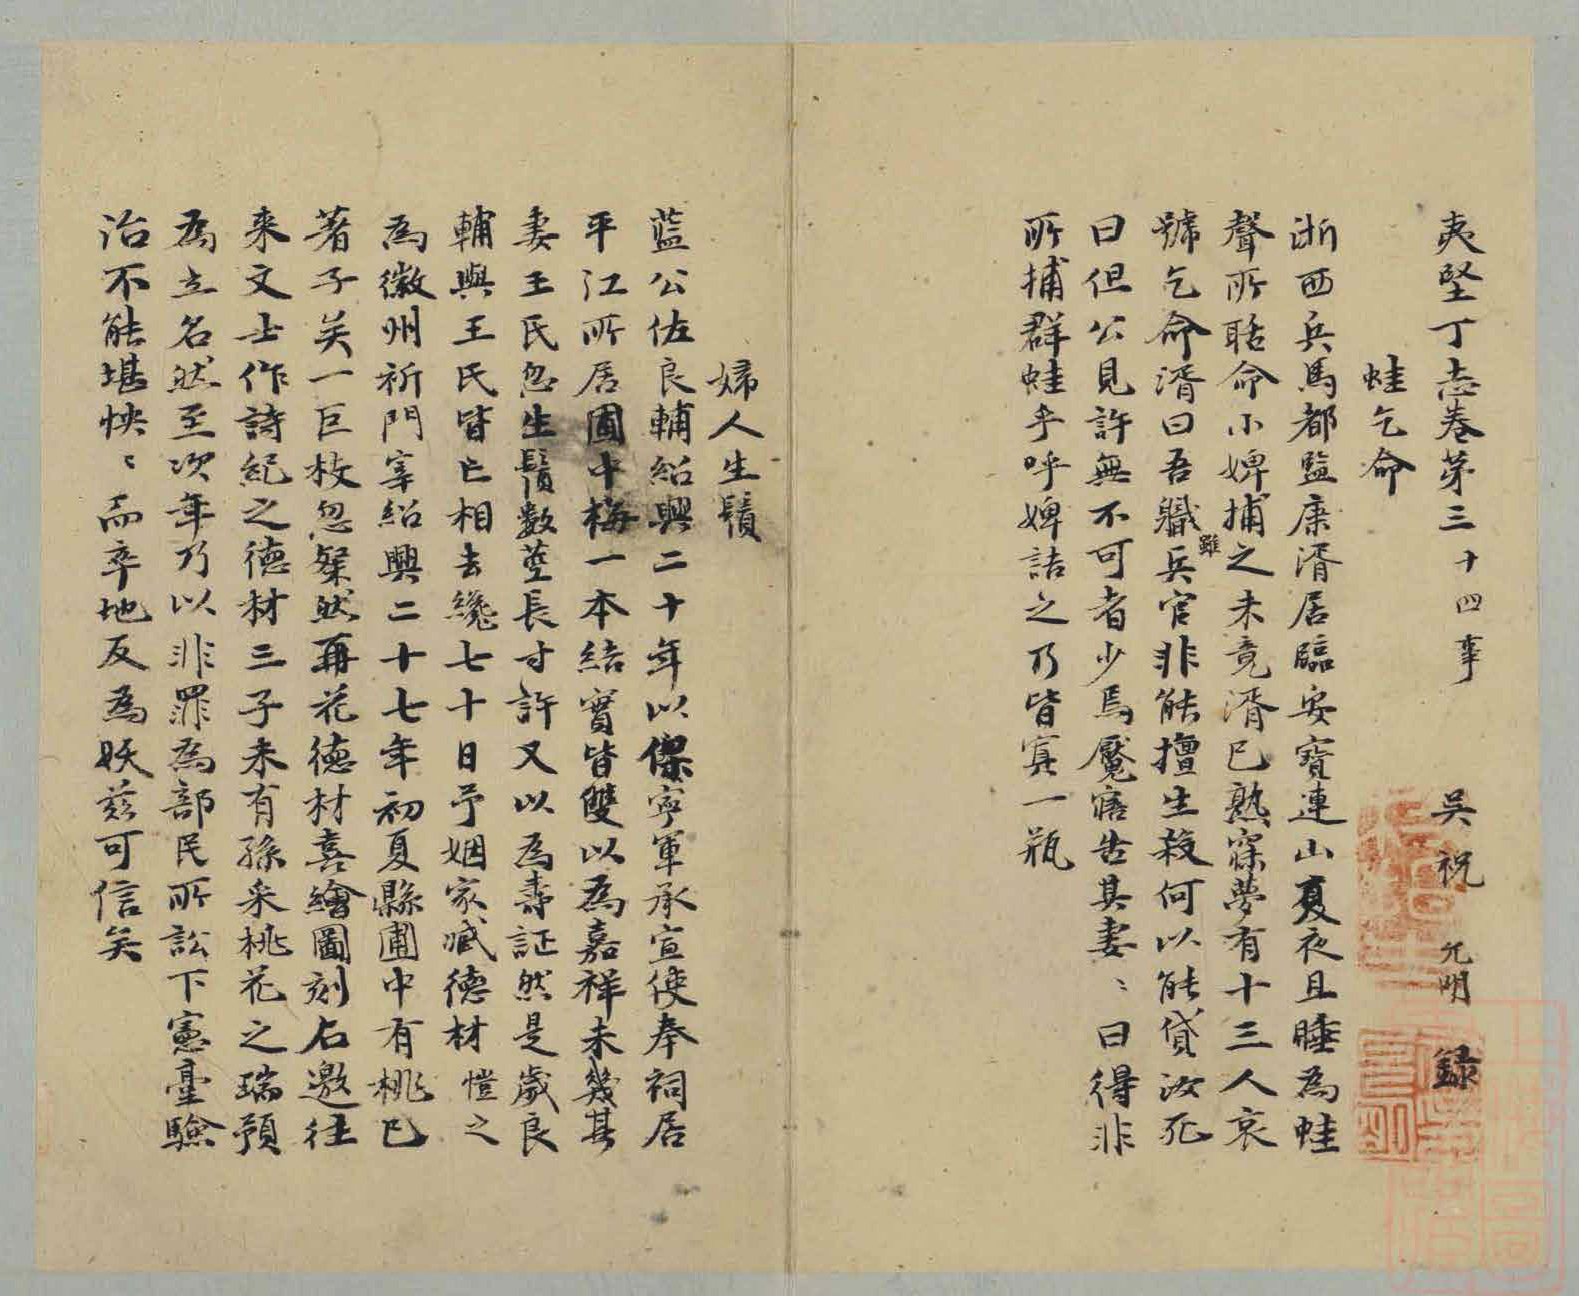 夷堅丁志卷第三十四事 吳祝允明録
蛙乞命
浙西兵馬都監康湑居臨安寳連山夏夜且睡為蛙
聲所聒命小婢捕之未竟湑已熟寐夢有十三人哀
號乞命湑曰吾職雖兵官非能擅生殺何以能貸汝死
曰但公見許無不可者少焉魘寤告其妻〻曰得非
所捕群蛙乎呼婢詰之乃皆寘一瓶
婦人生鬚
藍公佐良輔紹興二十年以保寕軍承宣使奉祠居
平江所居圃中梅一本結實皆雙以為嘉祥未幾其
妻王氏忽生鬚數莖長寸許又以為壽証然是歲良
輔與王氏皆亡相去纔七十日予姻家臧德材愷之
為徽州祈門宰紹興二十七年初夏縣圃中有桃已
著子矣一巨枝忽粲然再花德材喜繪圖刻石邀往
来文士作詩紀之德材三子未有孫采桃花之瑞預
為立名然至次年乃以非罪為部民所訟下憲臺驗
治不能堪怏〻而卒地反為妖兹可信矣